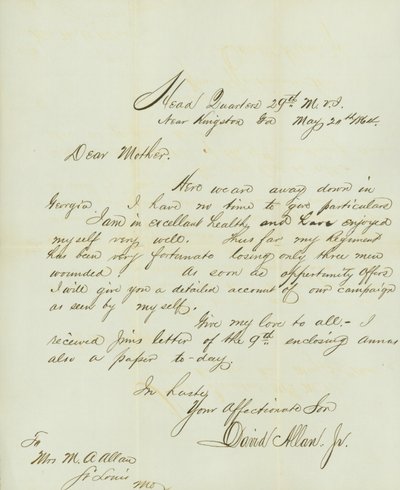 Head Quarters 29th M. v. I.
Near Kingston Ga May 20th 1864.
Dear Mother.
Here we are away down in
Georgia I have no time to give particulars
I am in excellent health and have enjoyed
myself very well. Thus far my Regiment
has been very fortunate losing only three men
wounded As soon as opportunity offers
I will give you a detailed account of our campaign
as seen by my self.
Give my love to all,- I
received Jim's letter of the 9th enclosing
also a paper to-day.
In haste
Your Affectionate Son
David Allan, Jr.
To
Mrs M. A Allan
St. Louis
Mo